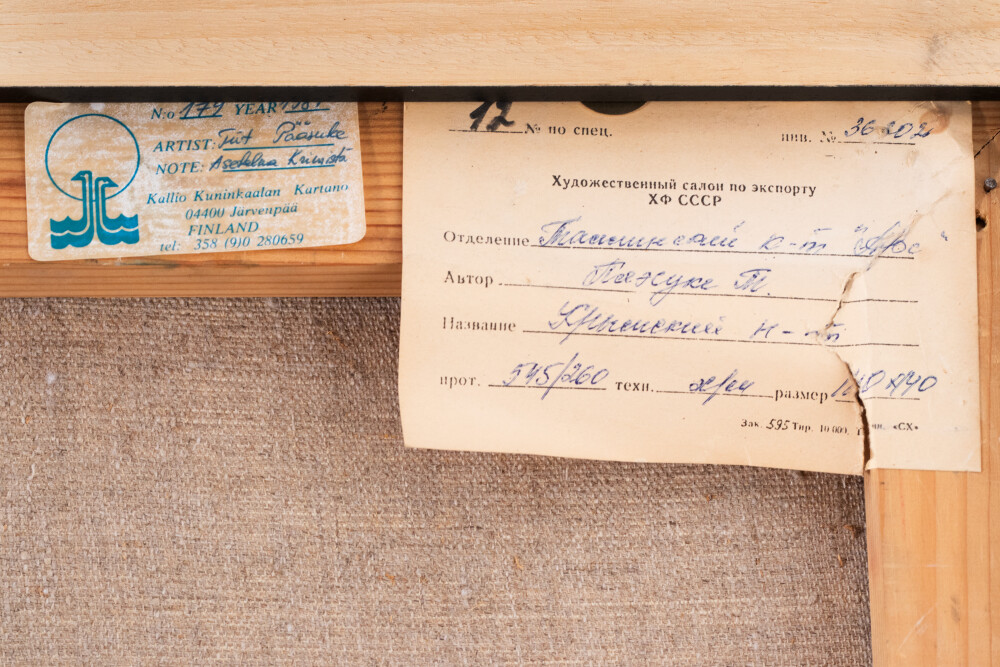 N:o 179 YEAR 1987
ARTIST: Tiit Pääsuke
NOTE: Asetelma Krimistä
Kallio Kuninkaalan Kartano
04400 Järvenpää
FINLAND
tel: 358 (9)0 280659
12 № по спец.
инв. № 36202
Художественный салон по экспорту
ХФ СССР
Отделение Таллинский к-т "Арс
Автор Пяэсуке Т.
Название Крымский н-т
прот. 545/260 техн. х/м размер 140х140
Зак. 595 Тир. 10 000. «СХ»